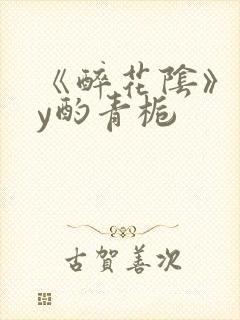 《醉花陰》
y酌青梔
古賀善次